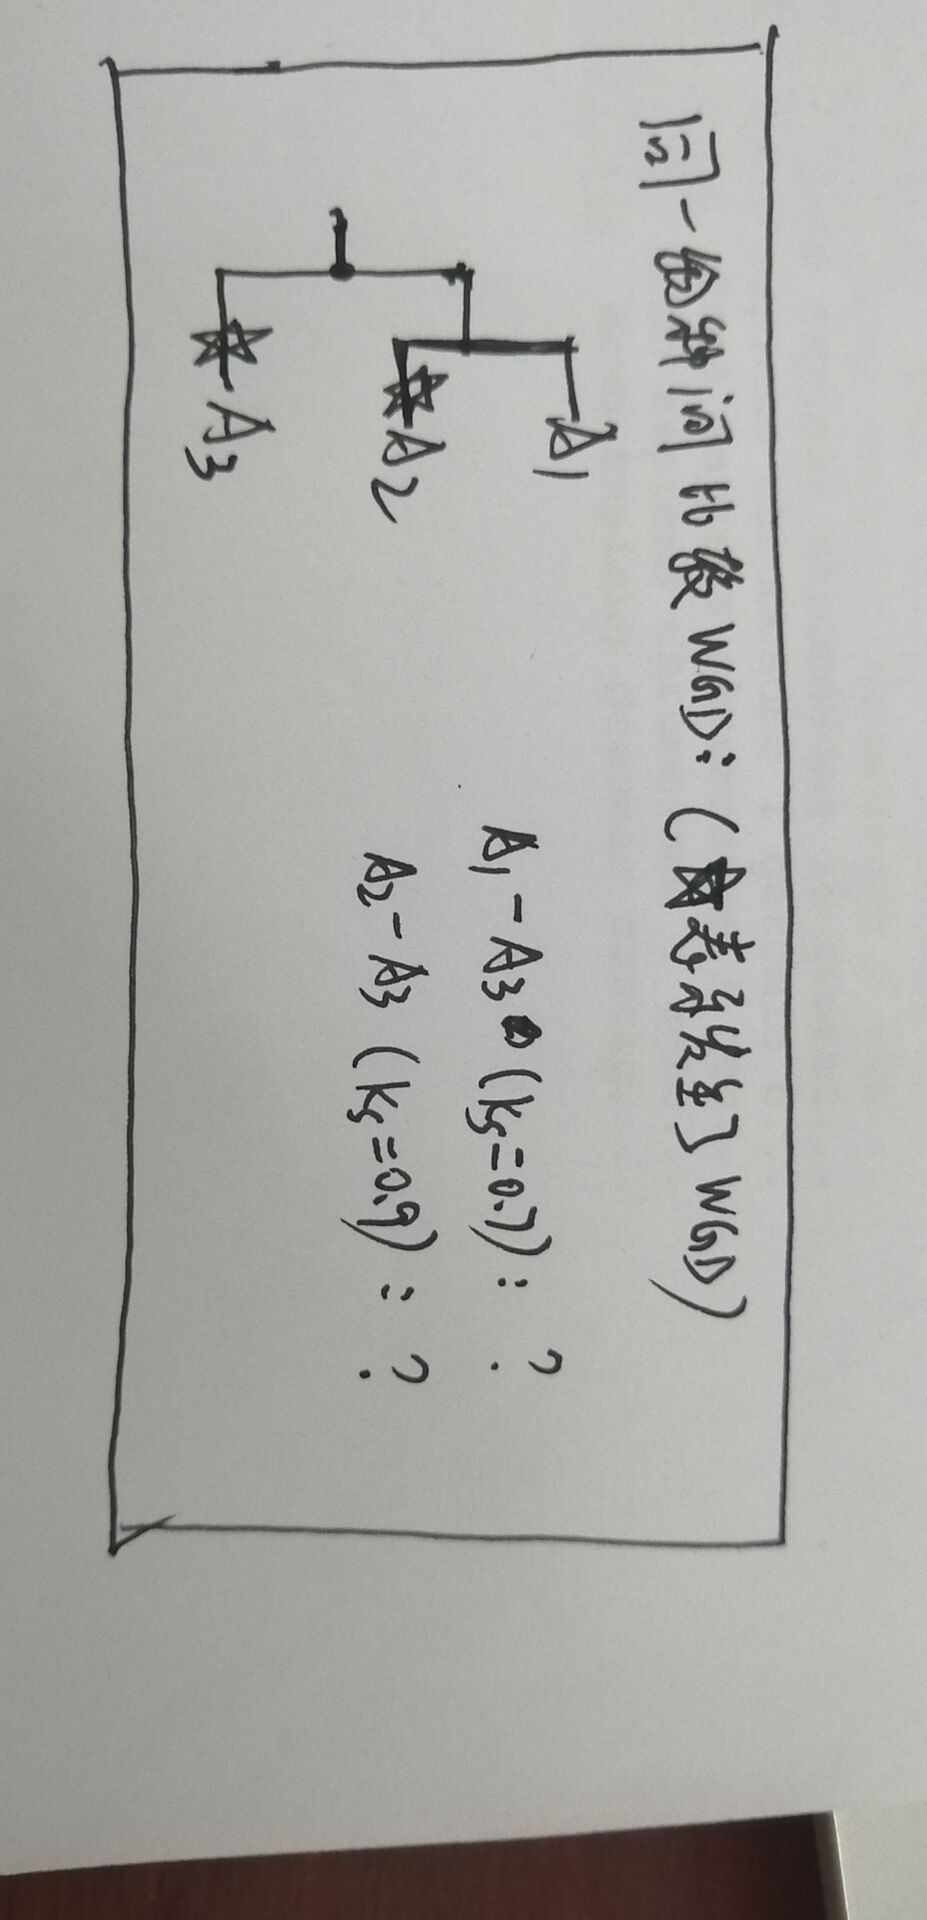 同一物种间比较WGD：(☆表示发生了WGD)
A1
A2
A3
A1-A3 (ks=0.7)：?
A2-A3 (ks=0.9)：?